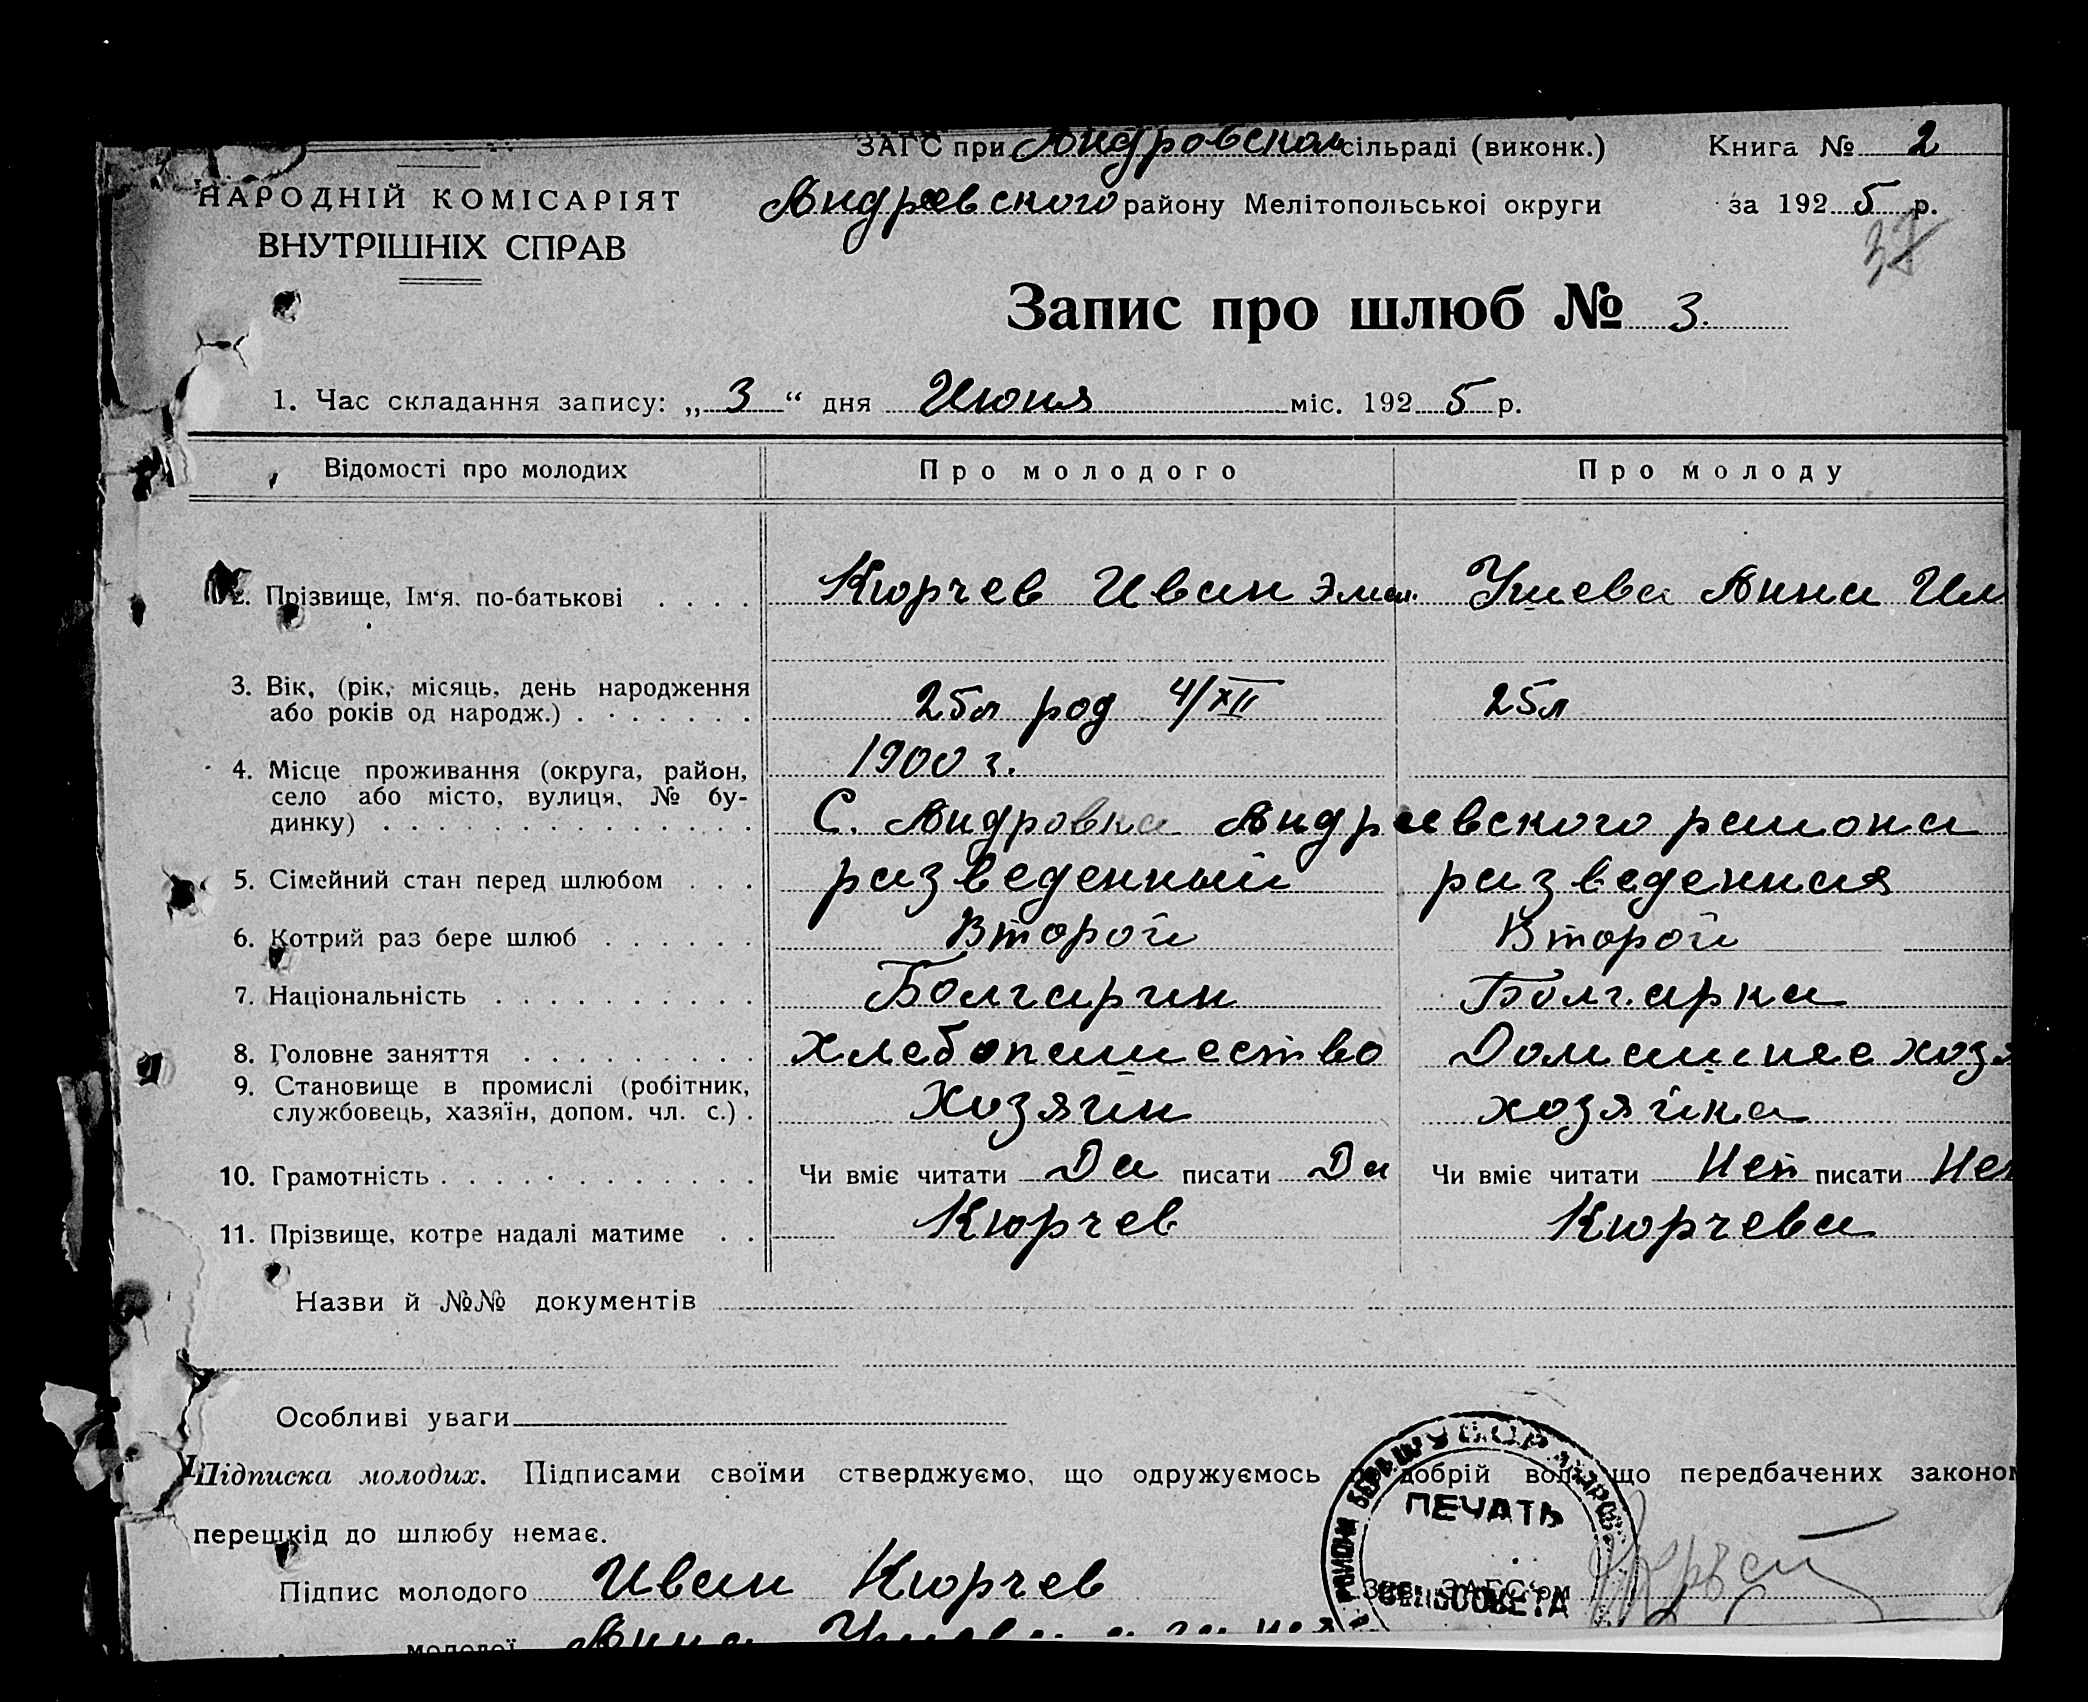 ЗАГС при Андровском сільраді (виконк.) Книга № 2
НАРОДНІЙ КОМІСАРІЯТ Андреевского району Мелітопольської округи за 1925 р.
ВНУТРІШНІХ СПРАВ
Запис про шлюб № 3.
1. Час складання запису: „3“ дня Июня міс. 1925 р.
Відомості про молодих Про молодого Про молоду
2. Прізвище, Ім'я. по-батькові . . . . Кюрчев Иван Эман. Ушева Анна Ил
3. Вік, (рік, місяць, день народження
або років од народж.) . . . . . . . 25л род 4/XII 25л
1900 г.
4. Місце проживання (округа, район,
село або місто, вулиця, № бу-
динку) . . . . . . . . . . . . . . С. Андровка Андреевского района
5. Сімейний стан перед шлюбом . . . разведенный разведенная
6. Котрий раз бере шлюб . . . . . . Второй Второй
7. Національність . . . . . . . . . . Болгарин Болгарка
8. Головне заняття . . . . . . . . . Хлебопашество Домашнее хозя
9. Становище в промислі (робітник,
службовець, хазяїн, допом. чл. с.) . Хозяин хозяйка
10. Грамотність . . . . . . . . . . . . Чи вміє читати Да писати Да Чи вміє читати Нет писати Нет
11. Прізвище, котре надалі матиме . . Кюрчев Кюрчева
Назви й №№ документів
Особливі уваги
Підписка молодих. Підписами своїми стверджуємо, що одружуємось добрій волі що передбачених законом
ПЕЧАТЬ
перешкід до шлюбу немає.
Підпис молодого Иван Кюрчев Зав. ЗАГС'ом
СЕЛЬСОВЕТА
молодої Анна Ушева